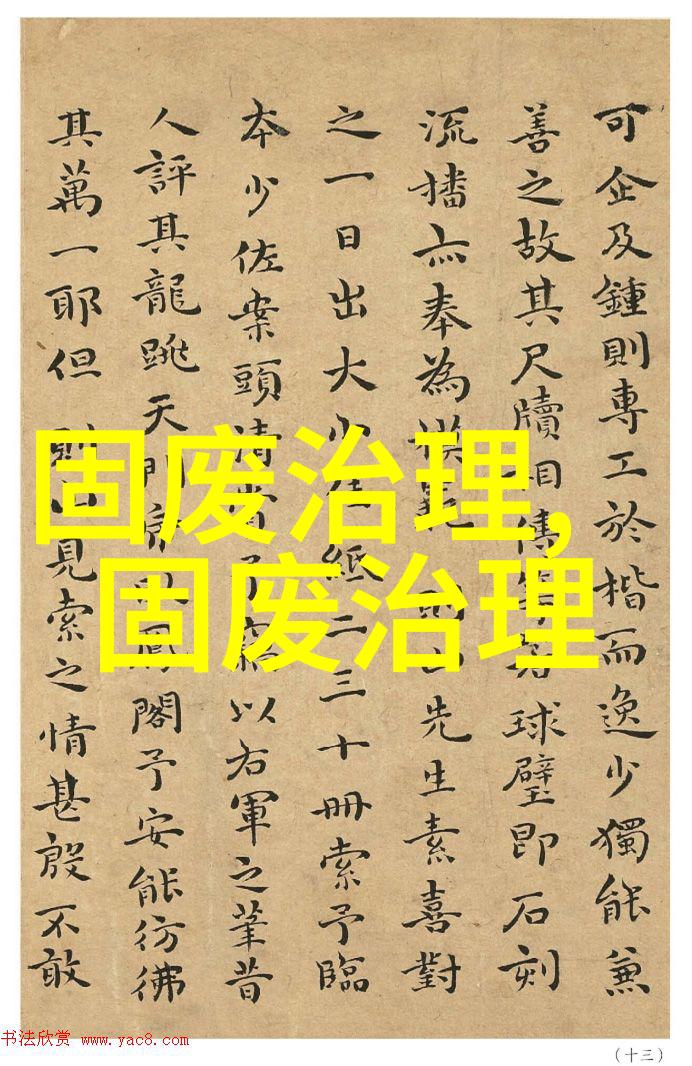 可企及鍾則專工於楷而逸少獨能兼
善之故其尺牘相傳等若球璧即石刻
流播亦奉為模範則山先生素喜對
之一日出大小紙二三十冊索予臨
本少佐案頭清賞予竊以右軍之筆昔
人評其龍跳天門虎臥鳳閣予安能彷彿
其萬一耶但則山見索之情甚殷不敢
固废治理,
固废治理
书法欣赏 www.yac8.com
(十三)